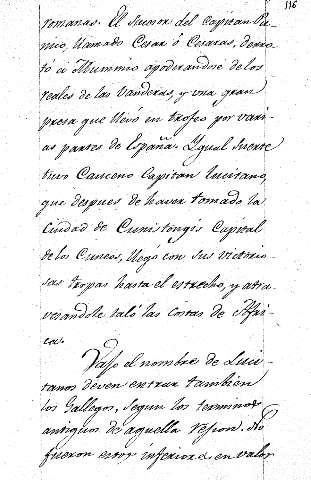 116
romanas. El sucesor del Capitan Pu-
nico, llamado Cesar ó Cesaras, derro-
tó a Mummio apoderandose de los
reales de las vanderas, y una gran
presa que llevó en trofeo por vari-
as partes de España. Ygual suerte
tuvo Cauceno Capitan lucitano,
que despues de haver tomado la
Ciudad de Cunistorgis Capital
de los Cuneos, llegó con sus victorio-
sas tropas hasta el estrecho, y atra-
vesandole taló las costas de Afri-
ca.
Vajo el nombre de Luci-
tanos deven entrar tambien
los Gallegos, segun los terminos
antiguos de aquella region. No
fueron estos inferiores en valor